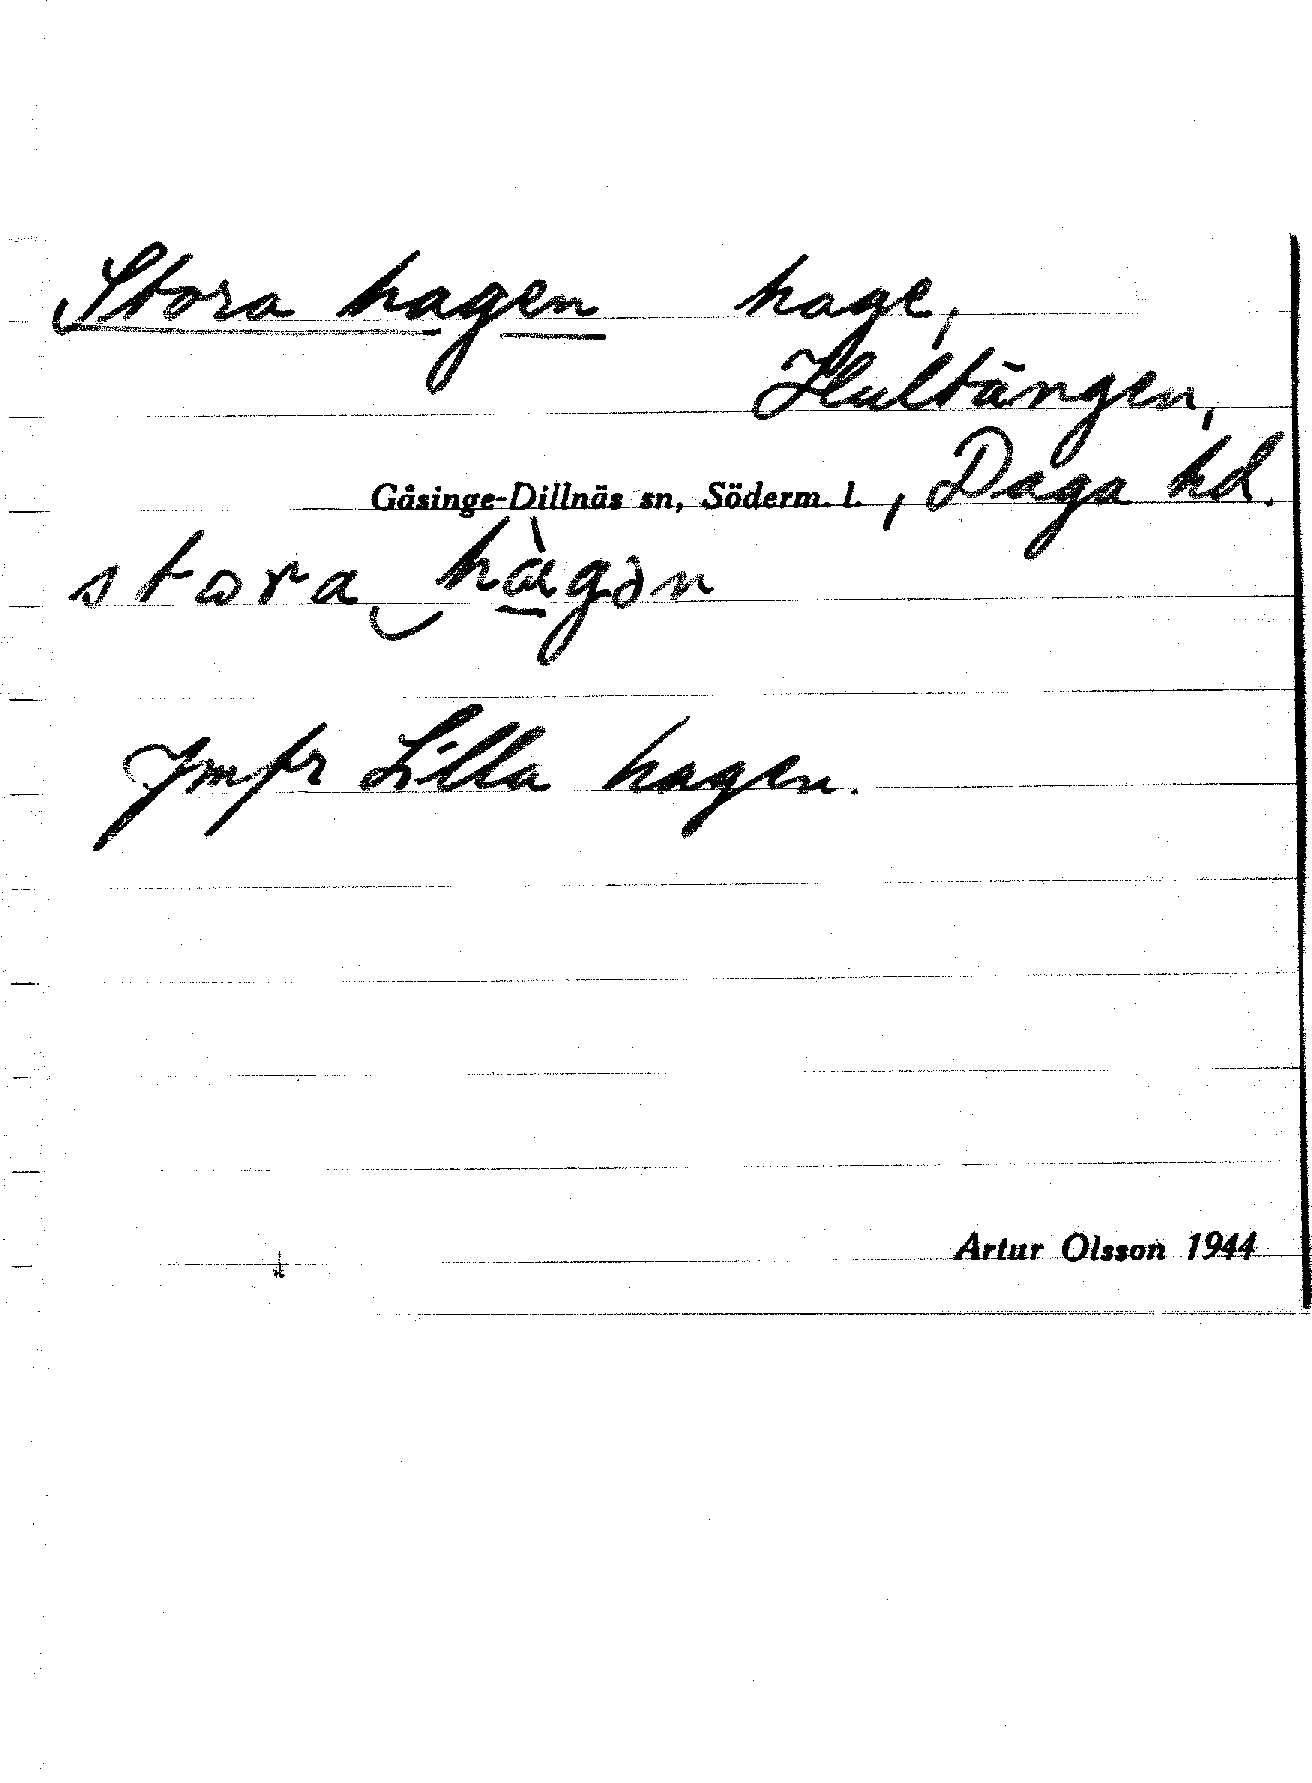 Stora hagen hage,
Hultängen,
Gåsinge-Dillnäs sn, Söderm. l., Daga hd.
stora hàgən
Jmfr Lilla hagen.
Artur Olsson 1944